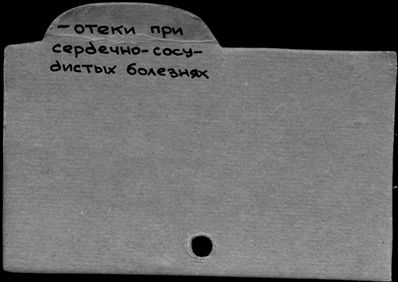 - отеки при
сердечно-сосу-
дистых болезнях